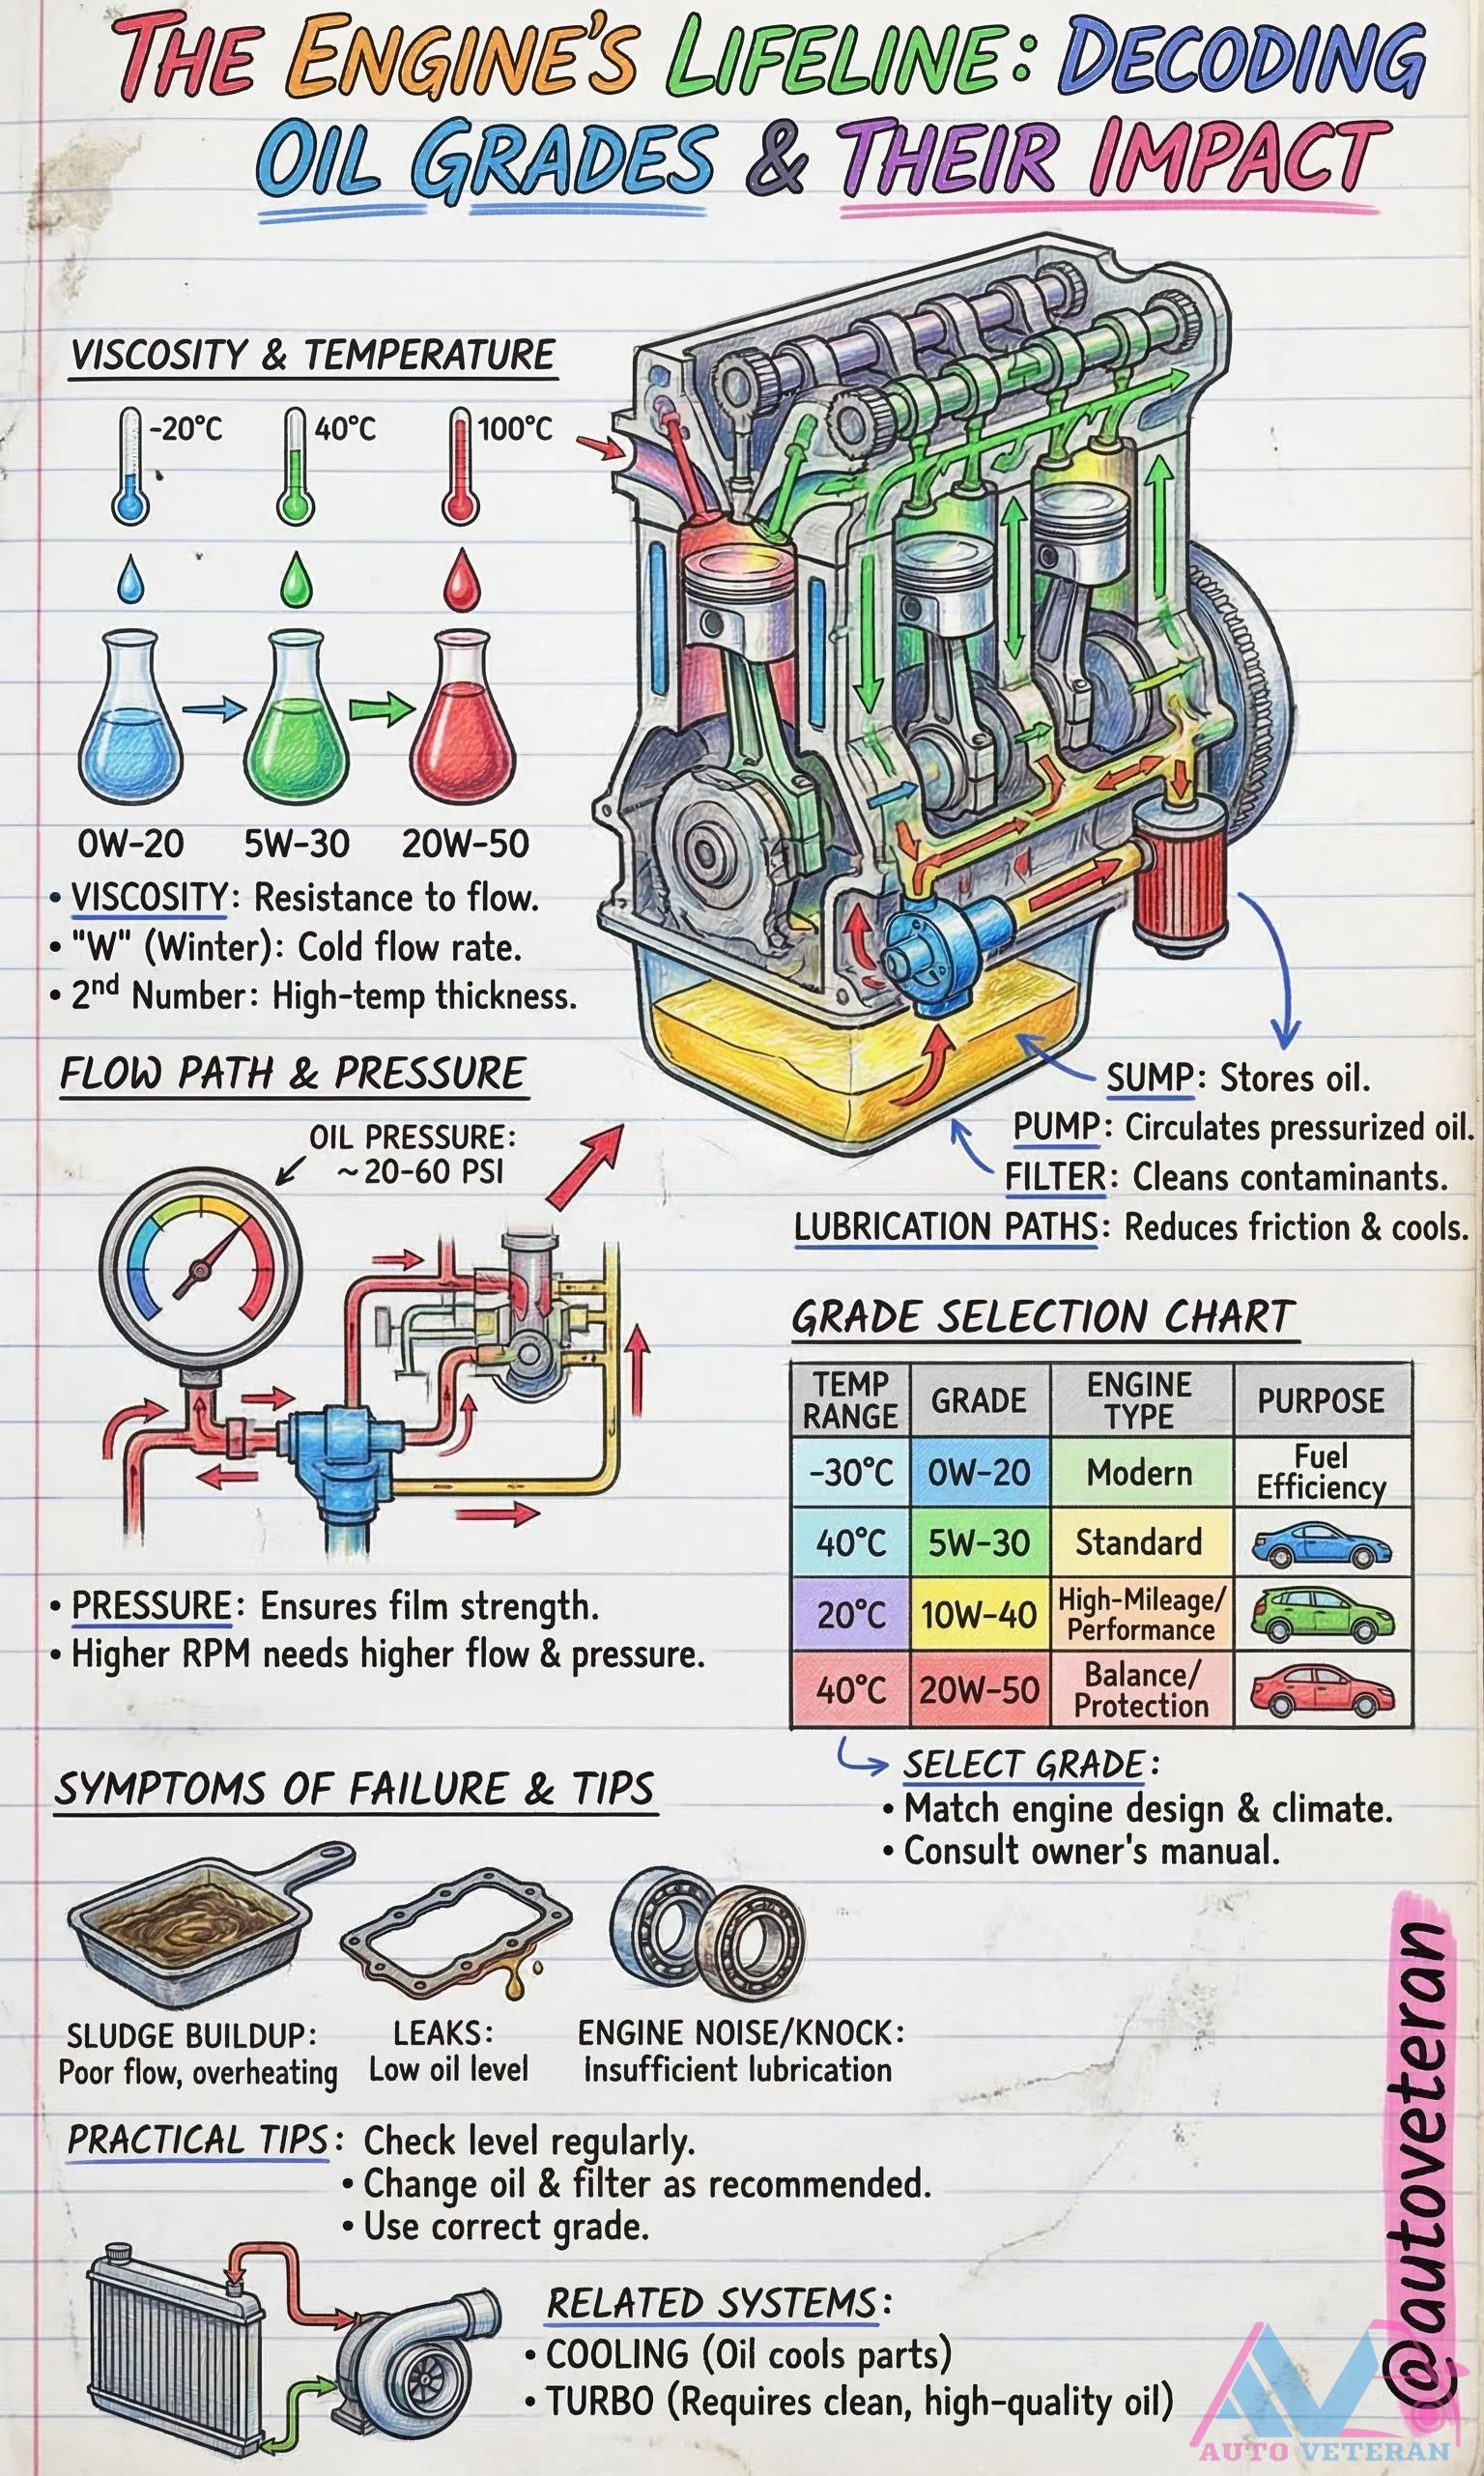 THE ENGINE'S LIFELINE: DECODING
OIL GRADES & THEIR IMPACT
VISCOSITY & TEMPERATURE
-20°C
40°C
100°C
0W-20
5W-30
20W-50
• VISCOSITY: Resistance to flow.
• "W" (Winter): Cold flow rate.
• 2nd Number: High-temp thickness.
SUMP: Stores oil.
PUMP: Circulates pressurized oil.
FILTER: Cleans contaminants.
LUBRICATION PATHS: Reduces friction & cools.
FLOW PATH & PRESSURE
OIL PRESSURE:
~20-60 PSI
• PRESSURE: Ensures film strength.
• Higher RPM needs higher flow & pressure.
GRADE SELECTION CHART
TEMP RANGE GRADE ENGINE TYPE PURPOSE
-30°C 0W-20 Modern Fuel Efficiency
40°C 5W-30 Standard
20°C 10W-40 High-Mileage/ Performance
40°C 20W-50 Balance/ Protection
SELECT GRADE:
• Match engine design & climate.
• Consult owner's manual.
SYMPTOMS OF FAILURE & TIPS
SLUDGE BUILDUP:
Poor flow, overheating
LEAKS:
Low oil level
ENGINE NOISE/KNOCK:
Insufficient lubrication
PRACTICAL TIPS: Check level regularly.
• Change oil & filter as recommended.
• Use correct grade.
RELATED SYSTEMS:
• COOLING (Oil cools parts)
• TURBO (Requires clean, high-quality oil)
@autoveteran
AUTO VETERAN